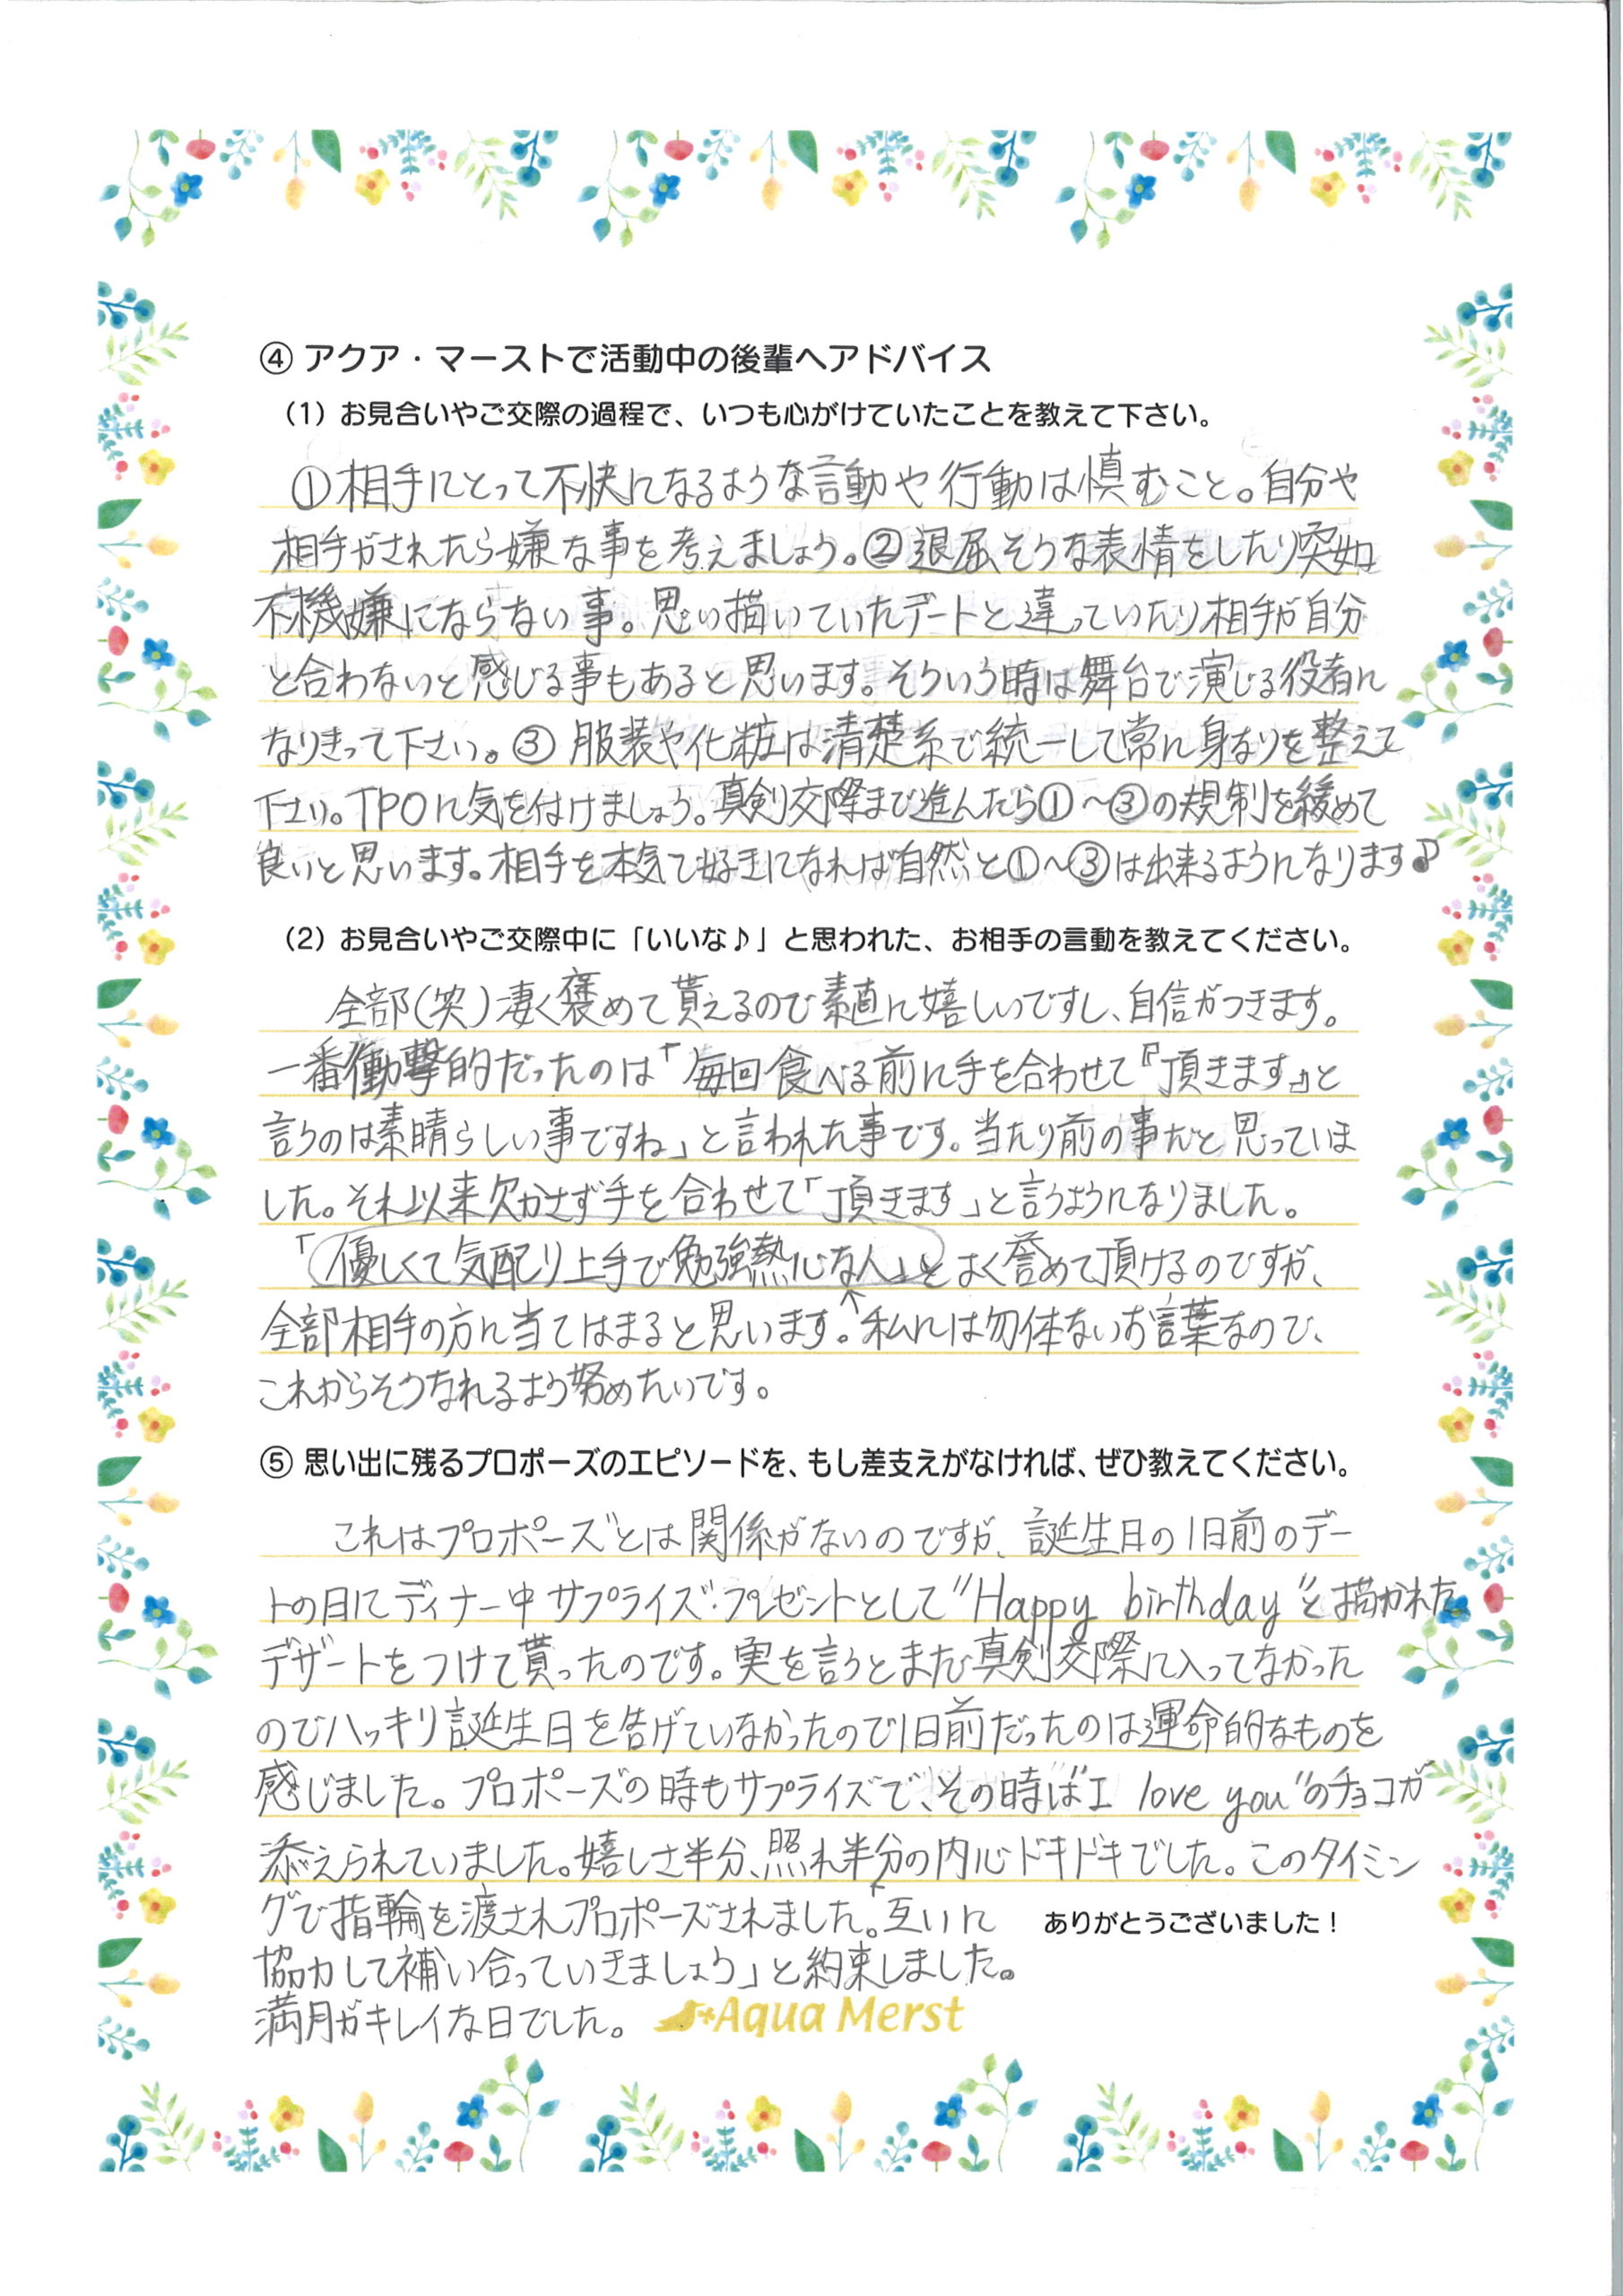 ④ アクア・マーストで活動中の後輩へアドバイス
（1）お見合いやご交際の過程で、いつも心がけていたことを教えて下さい。
①相手にとって不快になるような言動や行動は慎むこと。自分や
相手がされたら嫌な事を考えましょう。②退屈そうな表情をしたり突如
不機嫌にならない事。思い描いていたデートと違っていたり相手が自分
と合わないと感じる事もあると思います。そういう時は舞台で演じる役者に
なりきって下さい。③服装や化粧は清楚系で統一して常に身なりを整えて
下さい。TPOに気を付けましょう。真剣交際まで進んだら①〜③の規制を緩めて
良いと思います。相手を本気で好きになれば自然と①〜③は出来るようになります♪
（2）お見合いやご交際中に「いいな♪」と思われた、お相手の言動を教えてください。
全部(笑)凄く褒めて貰えるので素直に嬉しいですし、自信がつきます。
一番衝撃的だったのは「毎回食べる前に手を合わせて『頂きます』と
言うのは素晴らしい事ですね」と言われた事です。当たり前の事だと思っていま
した。それ以来欠かさず手を合わせて「頂きます」と言うようになりました。
「優しくて気配り上手で勉強熱心な人」とよく誉めて頂けるのですが、
全部相手の方に当てはまると思います。↑私には勿体ないお言葉なので、
これからそうなれるよう努めたいです。
⑤ 思い出に残るプロポーズのエピソードを、もし差支えがなければ、ぜひ教えてください。
これはプロポーズとは関係がないのですが、誕生日の1日前のデー
トの日にディナー中サプライズ・プレゼントとして"Happy birthday"と描かれた
デザートをつけて貰ったのです。実を言うとまだ真剣交際に入ってなかった
のでハッキリ誕生日を告げていなかったので1日前だったのは運命的なものを
感じました。プロポーズの時もサプライズで、その時は"I love you"のチョコが
添えられていました。嬉しさ半分、照れ半分の内心ドキドキでした。このタイミン
グで指輪を渡されプロポーズされました。「互いに
ありがとうございました！
協力して補い合っていきましょう」と約束しました。
満月がキレイな日でした。
Aqua Merst